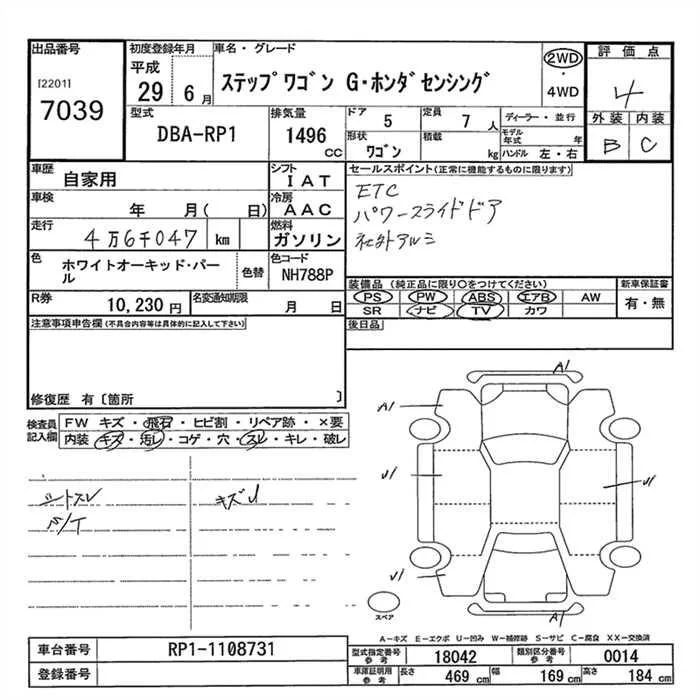 出品番号
[2201]
7039
初度登録年月
平成
29 6 月
車名・グレード
ステップワゴン G・ホンダセンシング
2WD
・
4WD
評価点
4
外装 内装
B C
型式
DBA-RP1
排気量
1496
CC
ドア
5
定員
7 人
ディーラー・並行
形状
ワゴン
積載
kg
モデル年式 年
ハンドル 左・右
車歴
自家用
シフト
IAT
車検
年 月( 日)
冷房
AAC
走行
4万6千047 km
燃料
ガソリン
色
ホワイトオーキッド・パール
色替
色コード
NH788P
R券
10,230 円
名変通知期限
月 日
セールスポイント(正常に機能するものに限ります)
ETC
パワースライドドア
社外アルミ
装備品 (純正品に限り〇をつけてください)
PS PW ABS エアB AW
SR ナビ TV カワ
新車保証書
有・無
後日品
注意事項申告欄(不具合内容等は具体的に記入して下さい)
修復歴 有〔箇所 〕
検査員
記入欄
FW キズ・飛石・ヒビ割・リペア跡・×要
内装 キズ・汚レ・コゲ・穴・スレ・キレ・破レ
シートスレ
キズU
A1
A1
U1
U1
U1
スペア
A−キズ E−エクボ U−凹み W−補修跡 S−サビ C−腐食 XX−交換済
車台番号
RP1-1108731
登録番号
型式指定番号
参考
18042
類別区分番号
参考
0014
車庫証明用
参考
長さ
469 cm
幅
169 cm
高さ
184 cm